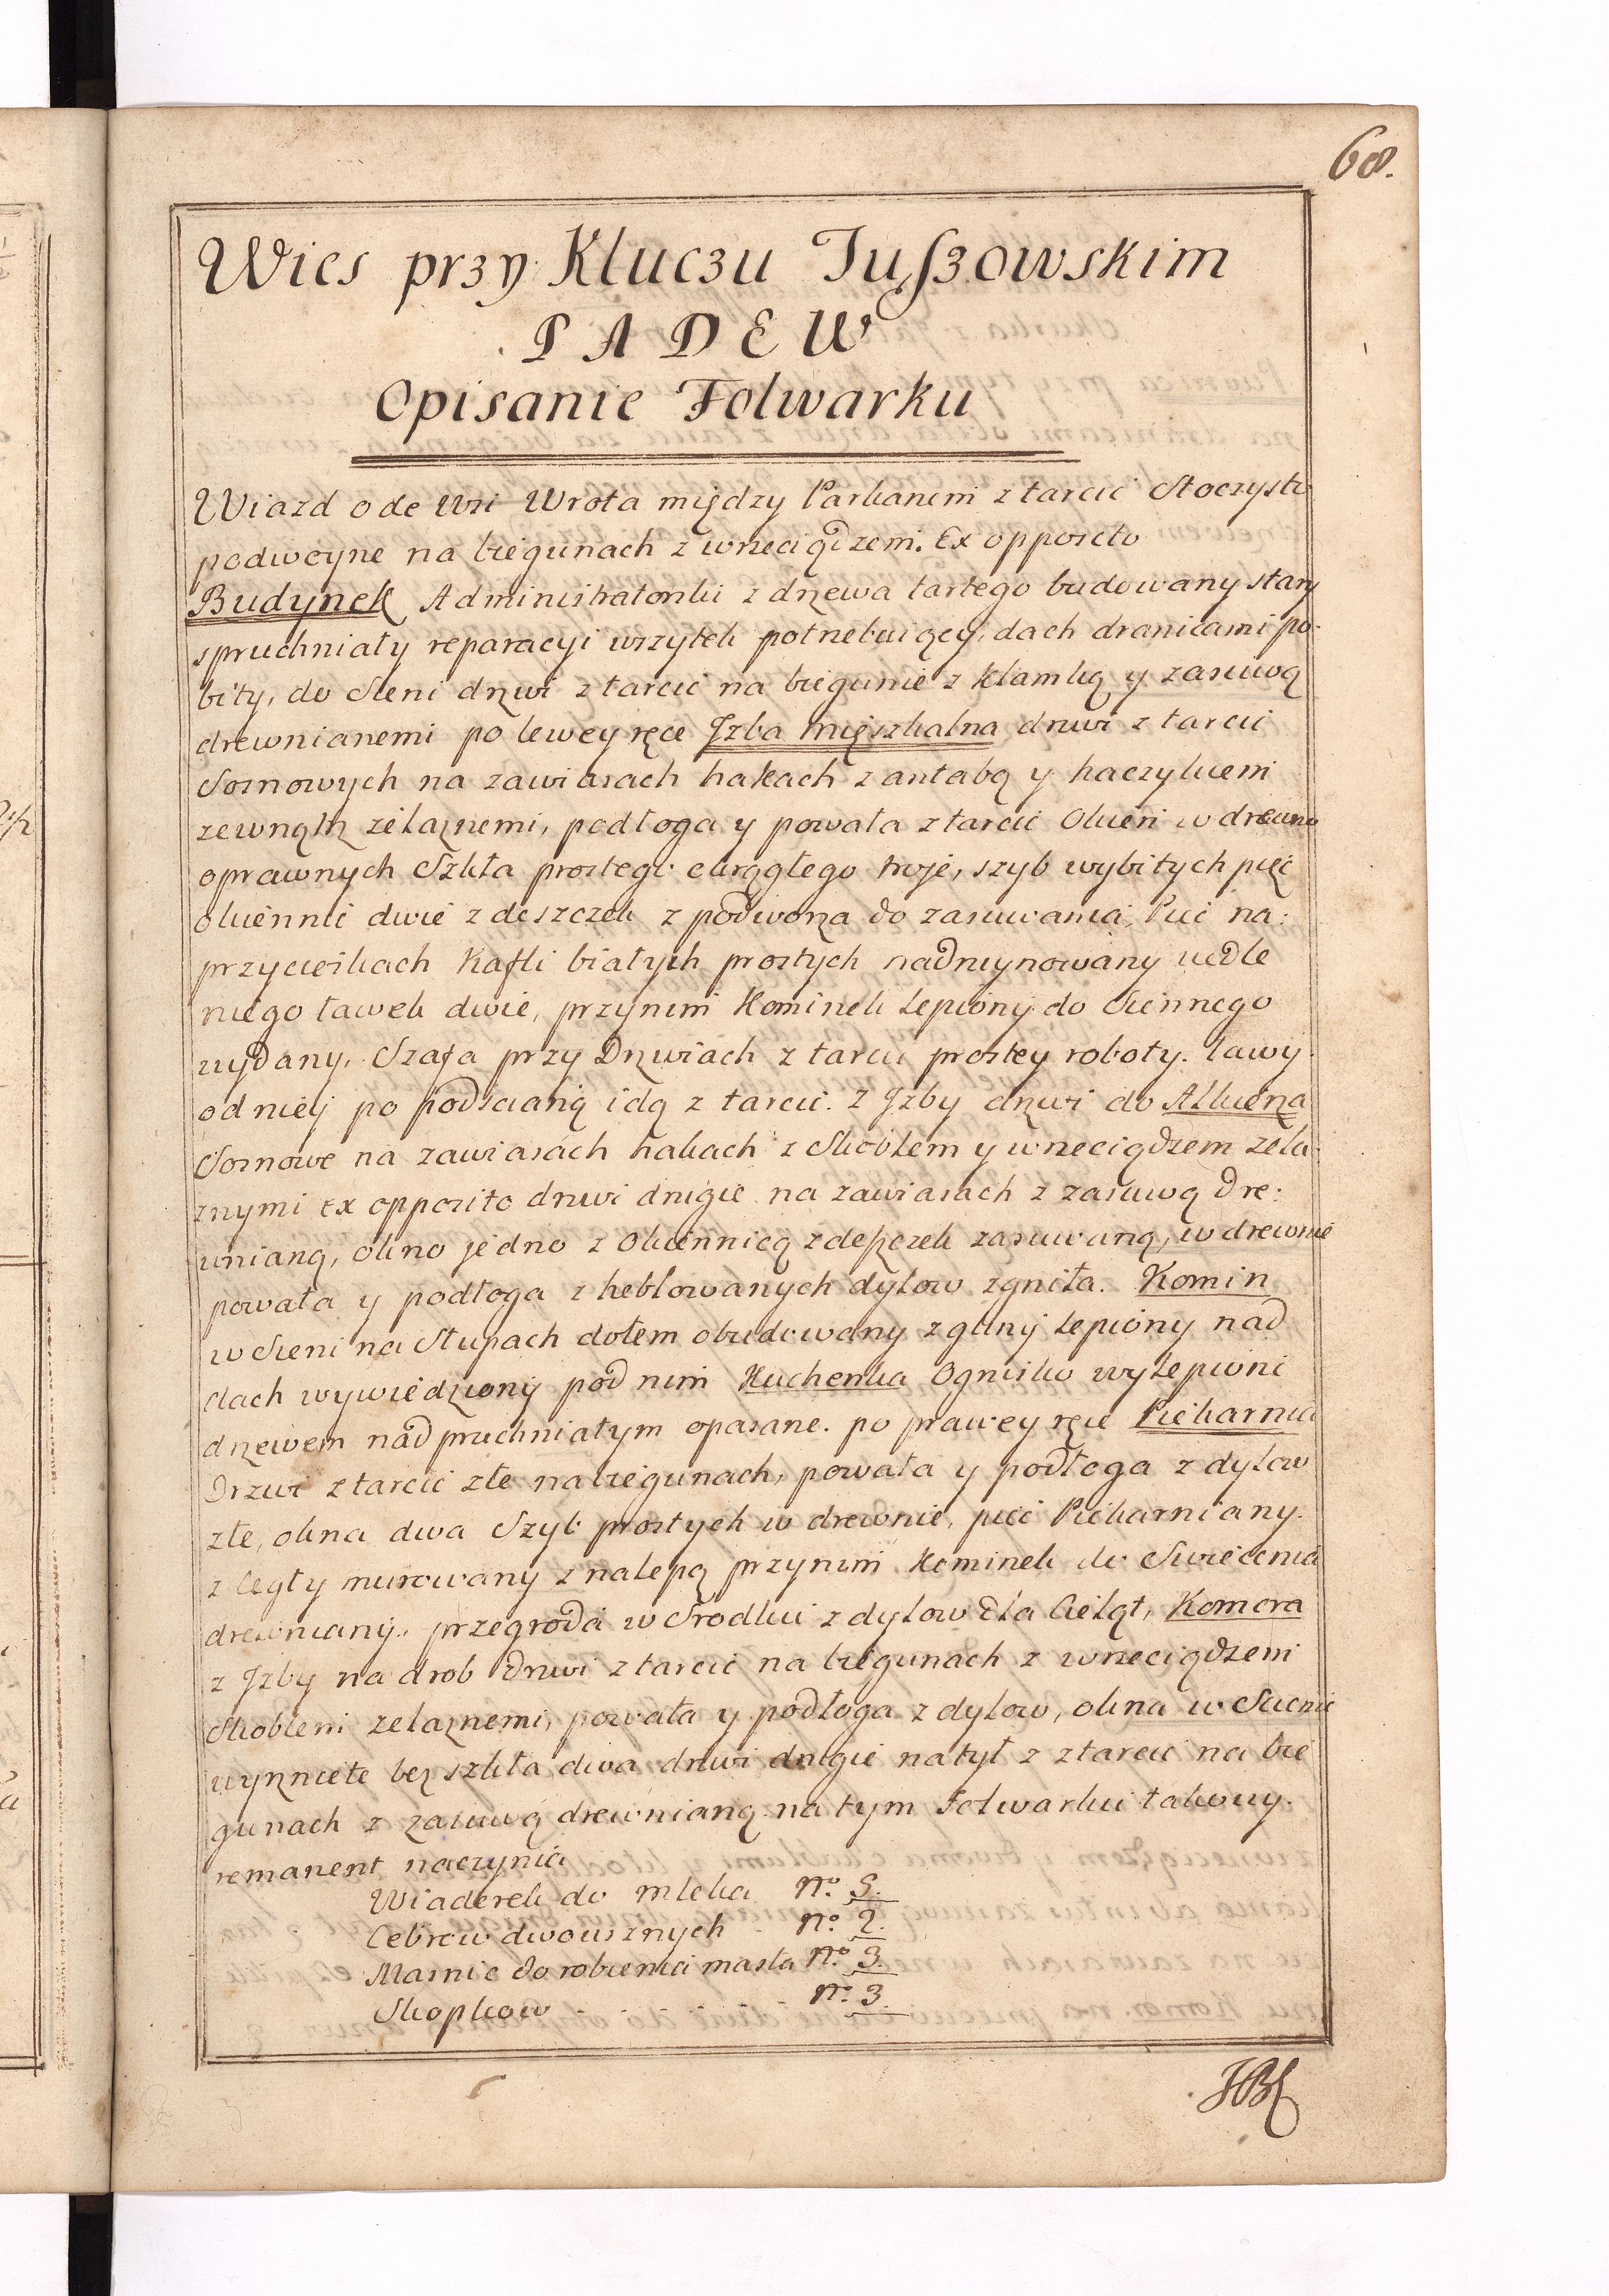 68.
Wies przy Kluczu Tuszowskim
PADEW
Opisanie Folwarku
Wiazd ode Wsi Wrota między Parkanem z tarcic Stoczysto
podwoyne na biegunach z wrzeciądzem. Ex opposito
Budynek Administratorski z drzewa tartego budowany stary
spruchniały reparacyi wszytek potrzebuiący, dach dranicami po-
bity, do Sieni drzwi z tarcic na biegunie z klamką y zasuwą
drewnianemi po lewey ręce Jzba mięszkalna drzwi z tarcic
Sosnowych na zawiasach hakach z antabą y haczykiem
zewnątrz żelaznemi, podłoga y powała z tarcic Okien w drewno
oprawnych Szkła prostego okrągłego troje, szyb wybitych pięć
okiennic dwie z deszczek z podworza do zasuwania, Piec na:
przycieśkach Kafli białych prostych nadruynowany wedle
niego ławek dwie, przynim Kominek lepiony do Siennego
wydany, Szafa przy Drzwiach z tarcic prostey roboty. ławy
od niey po pod scianą idą z tarcic. Z Jzby drzwi do Alkierza
Sosnowe na zawiasach hakach z Skoblem y wrzeciądzem żela:
znymi ex opposito drzwi drugie na zawiasach z zasuwą dre:
wnianą, okno jedno z Okiennicą z deszczek zasuwaną, w drewnie
powała y podłoga z heblowanych dylow zgniła. Komin
w Sieni na Słupach dołem obudowany z gliny lepiony nad
dach wywiedziony pod nim Kuchenka Ognisko wylepioni
drzewem nadpruchniałym opasane. po prawey ręce Piekarnia
Drzwi z tarcic złe na biegunach, powała y podłoga z dylow
złe, okna dwa Szyb prostych w drewnie, piec Piekarniany
z Cegły murowany z nalepą przynim Kominek do Swiecenia
drewniany, przegroda w Srodku z dylow dla Cieląt, Komora
z Jzby na drob Drzwi z tarcic na biegunach z wrzeciądzem
Skoblem żelaznemi, powała y podłoga z dylow, okna w Scienie
wyrznięte bez szkła dwa drzwi drugie natył z tarcic na bie
gunach z zasuwą drewnianą na tym Folwarku takowy
remanent naczynia
Wiaderek do mleka No 5.
Cebrow dwousznych No 2.
Masnic do robienia masła No 3.
Skopkow - - - - No 3.